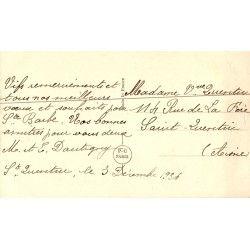 Vifs remerciements et
tous nos meilleurs
voeux et souhaits pour
Ste Barbe. Nos bonnes
amitiés pour vous deux
M. et E. Dautigny
St Quentin, le 3 Décembre 1934
Madame Vve Quentin
114 Rue de La Fère
Saint-Quentin
(Aisne)
PARIS